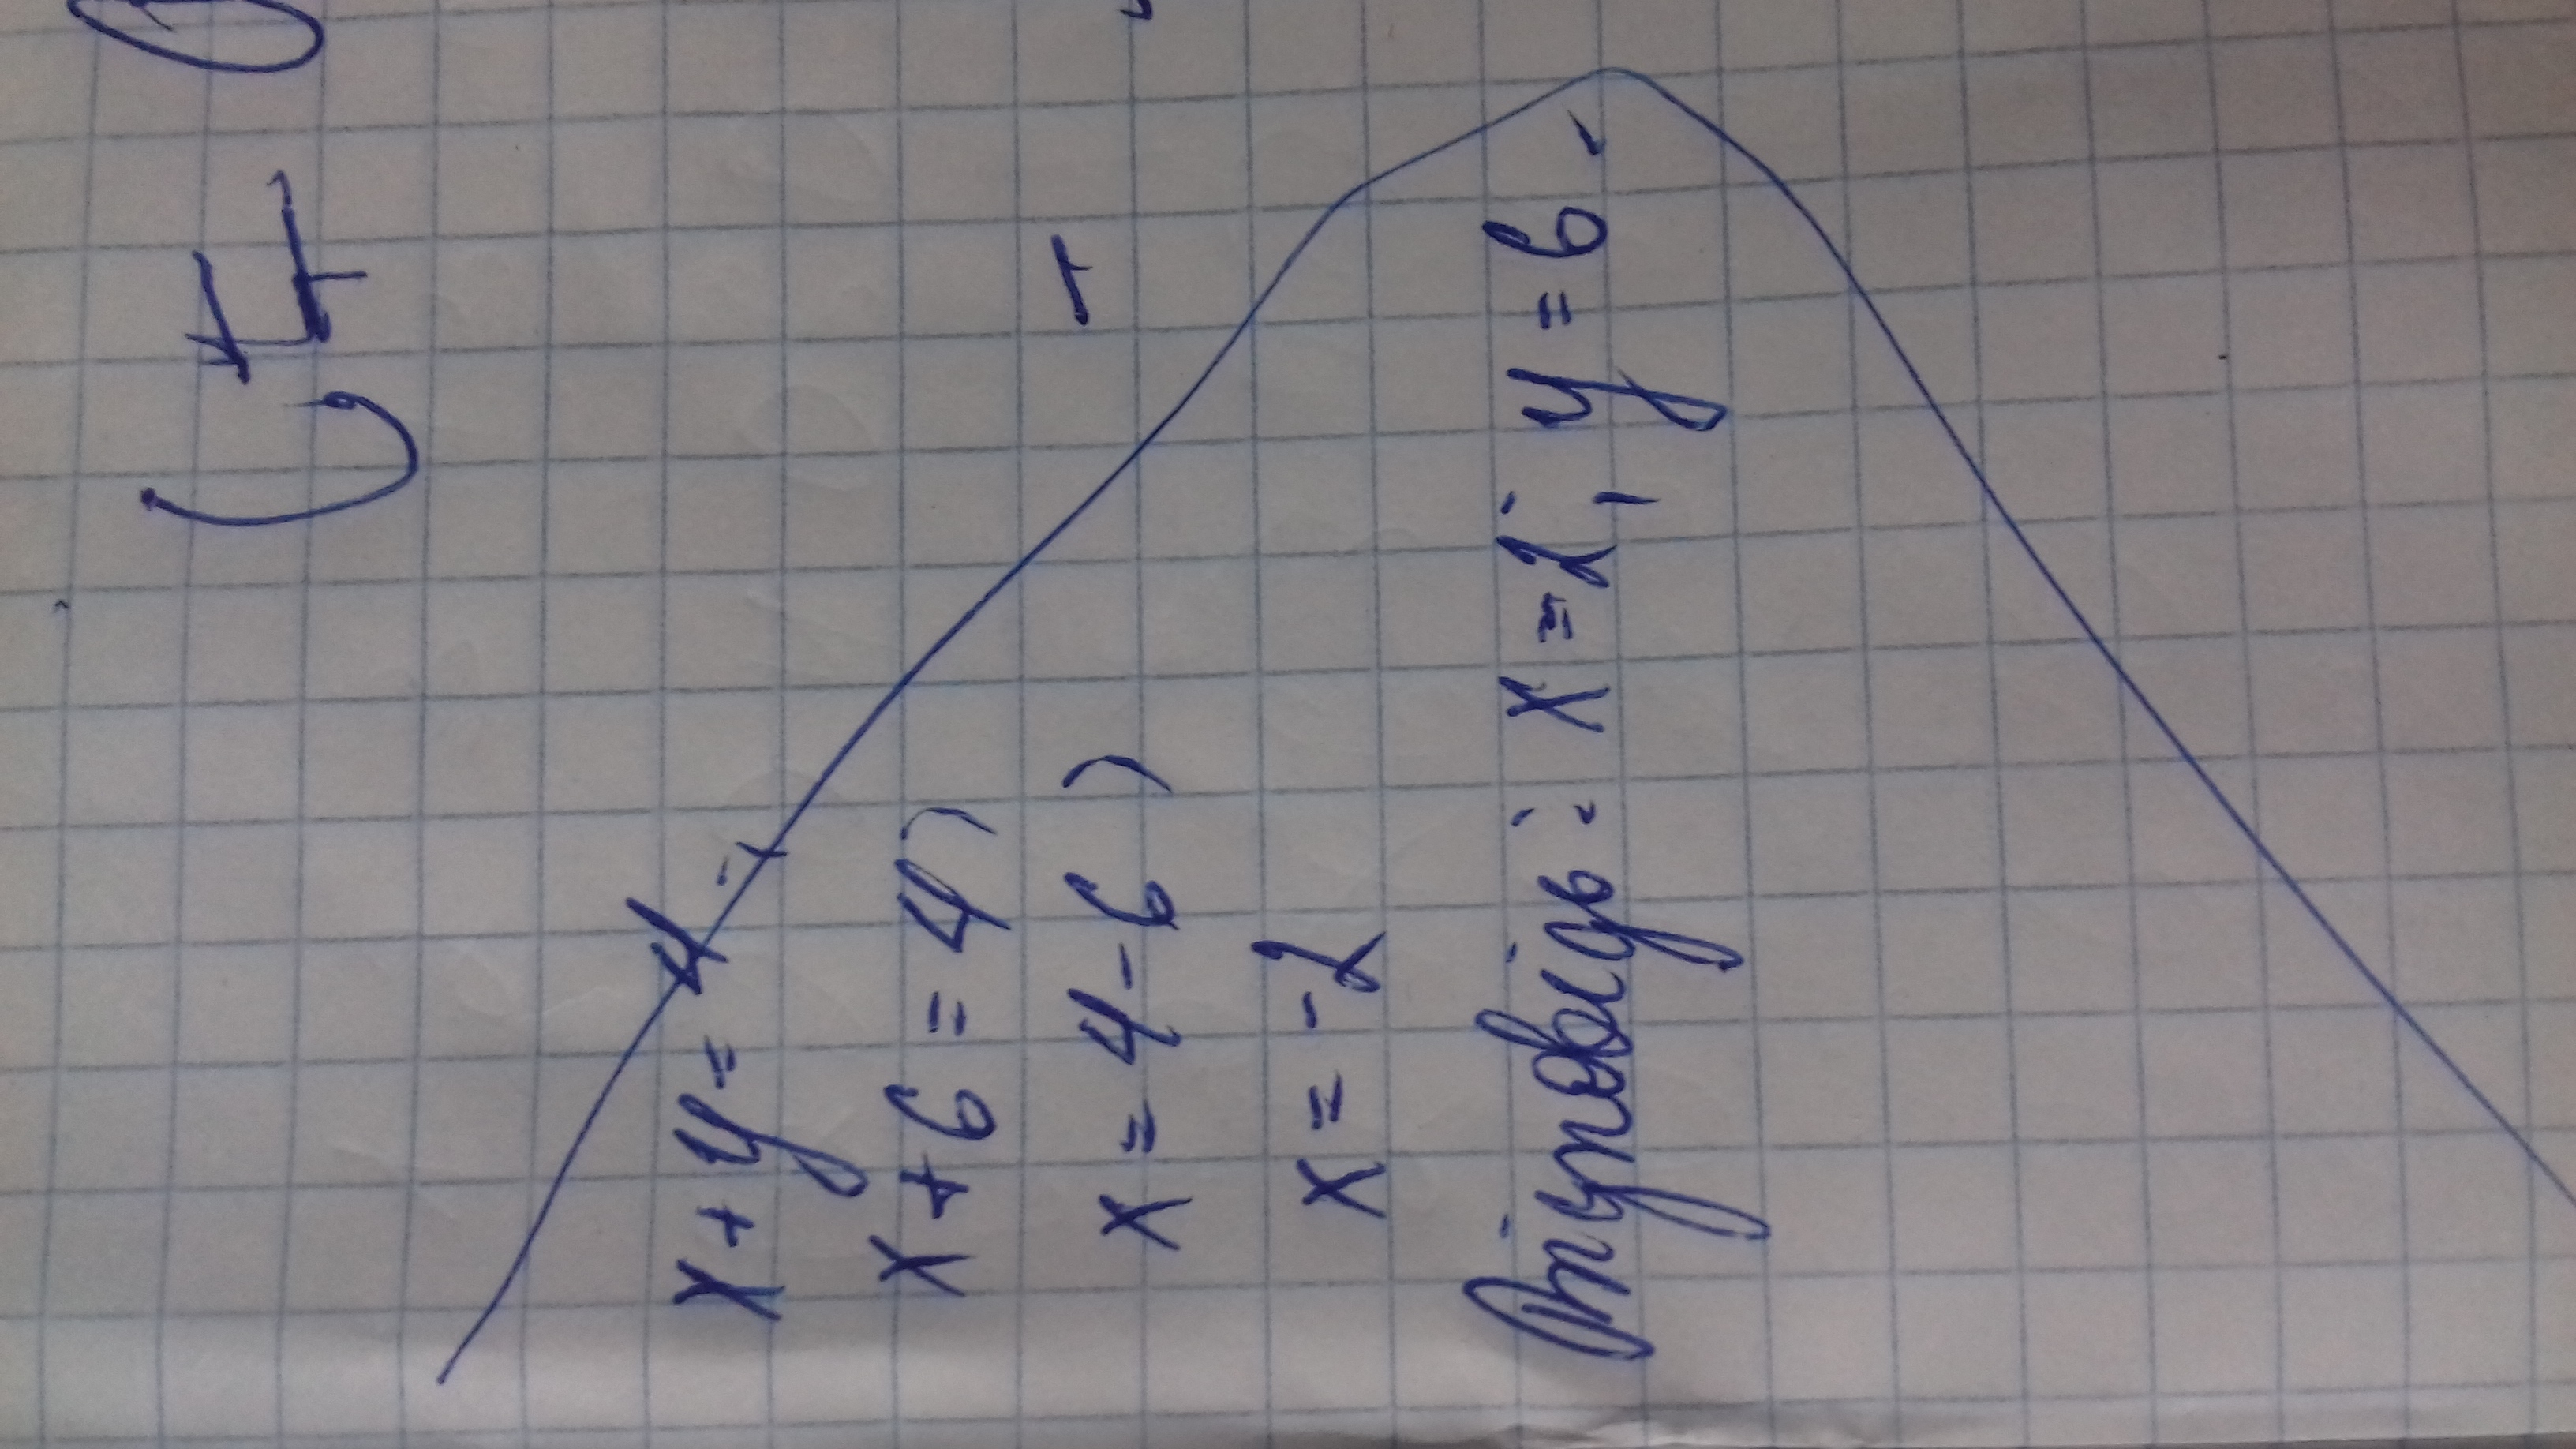 x + y = 4;
x + 6 = 4;
x = 4 - 6;
x = -2
Відповідь: x = 2; y = 6